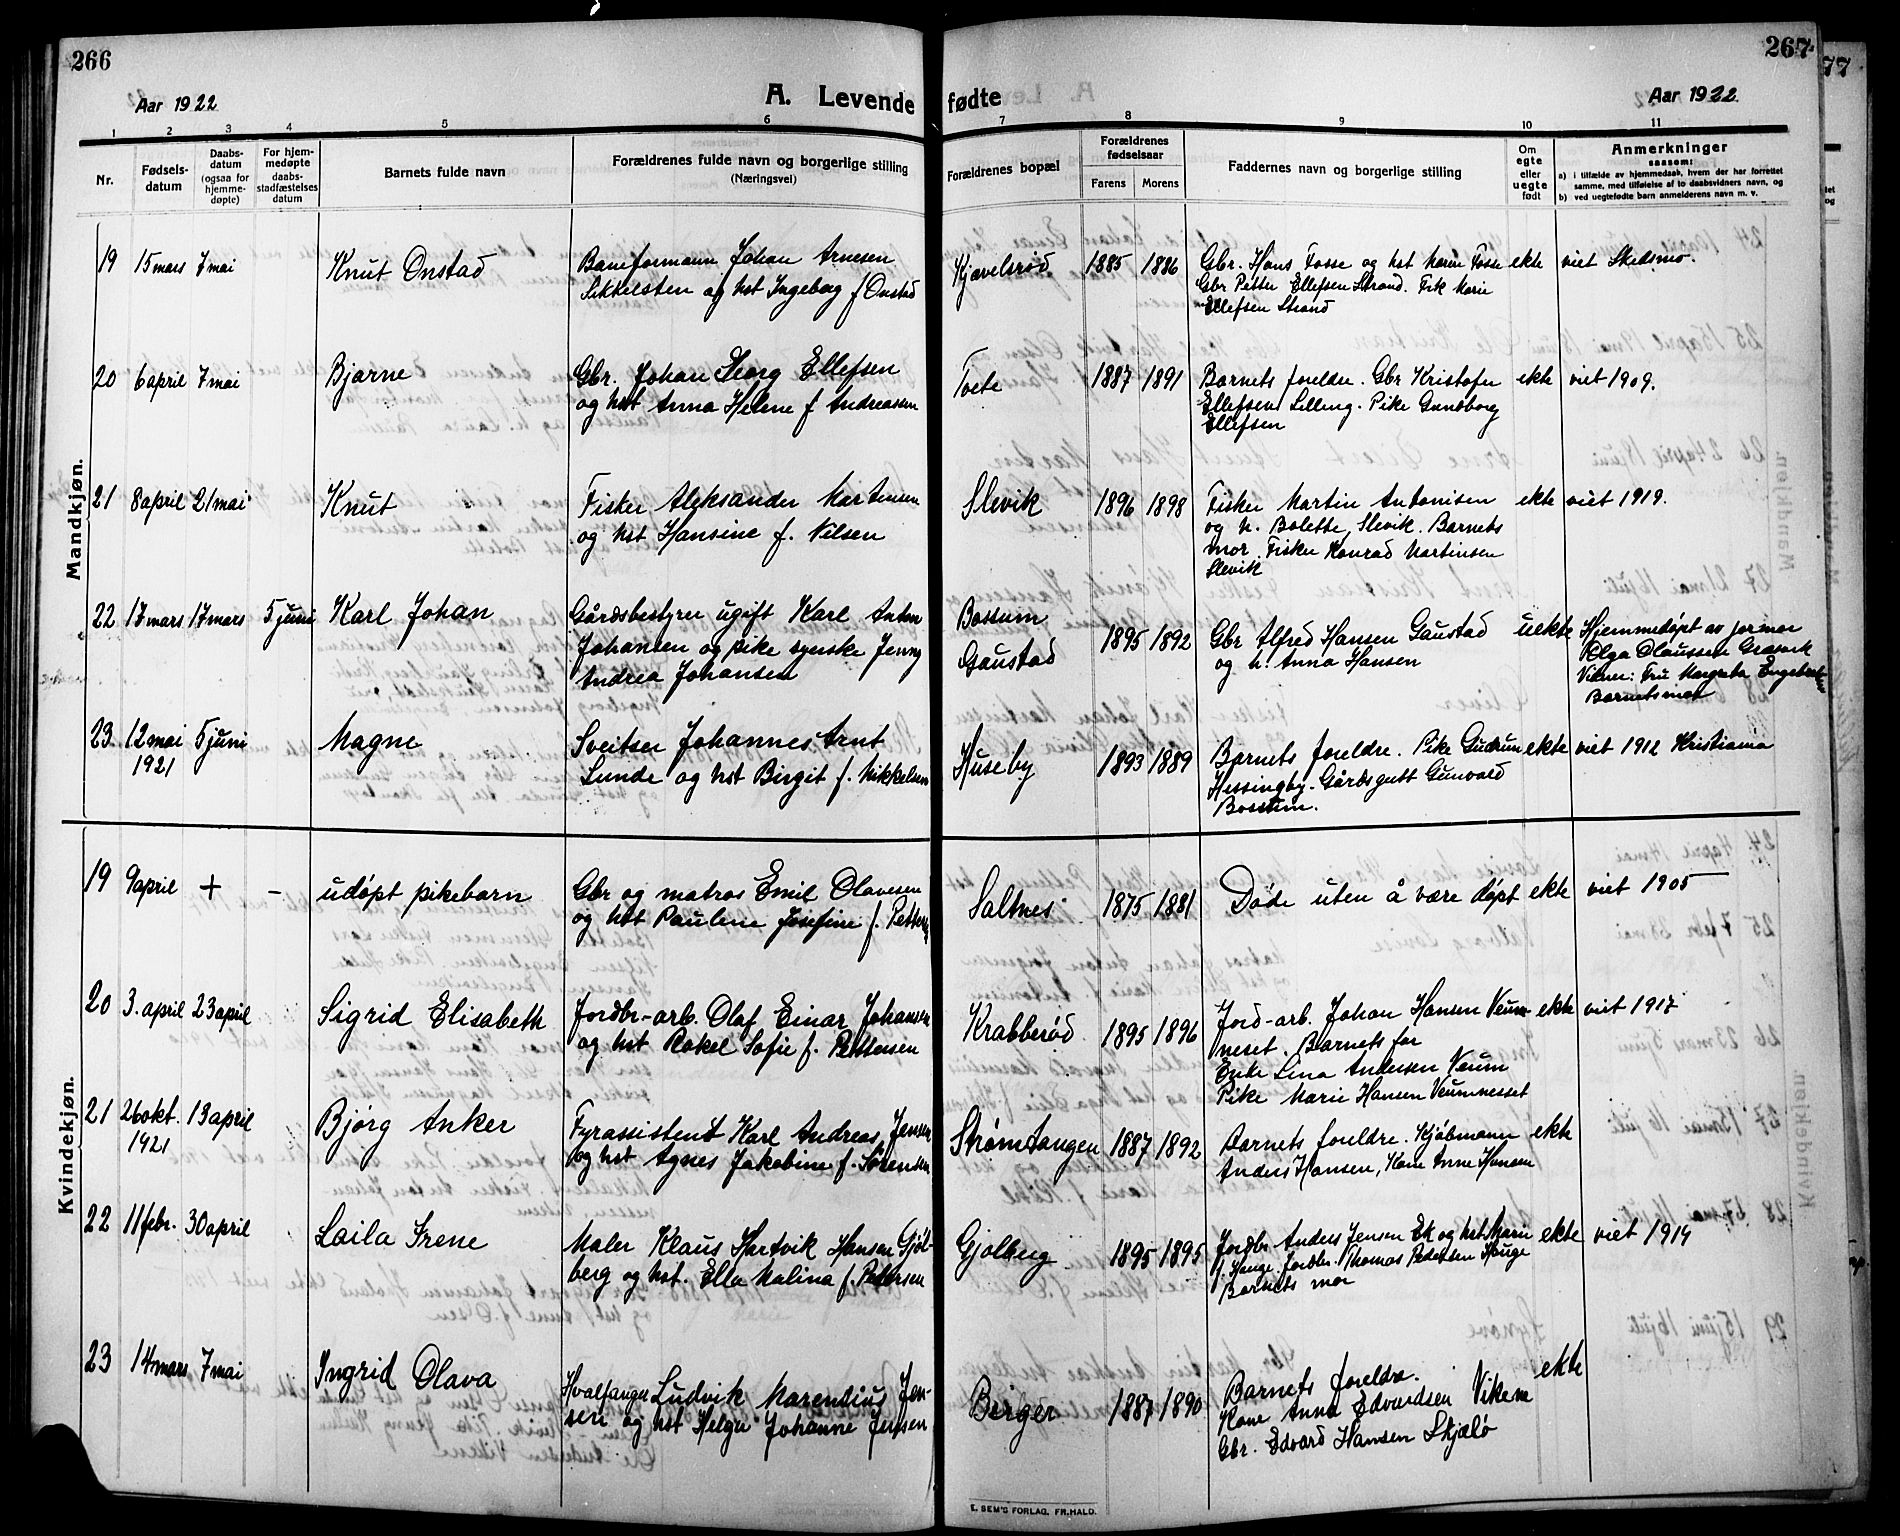 266
Aar 1922
A. Levende fødte
Aar 1922.
267
1 2 3 4 5 6 7 8 9 10 11
Nr.
Fødsels-
datum
Daabs-
datum
(ogsaa for
hjemme-
døpte)
For hjem-
medøpte
daabs-
stadfæstelses
datum
Barnets fulde navn
Forældrenes fulde navn og borgerlige stilling
(Næringsvei)
Forældrenes bopæl
Forældrenes
fødselsaar
Farens Morens
Faddernes navn og borgerlige stilling
Om
egte
eller
uegte
født
Anmerkninger
saasom:
a) i tilfælde av hjemmedaab, hvem der har forrettet
samme, med tilføielse af to daabsvidners navn, og
b) ved uegtefødte barn anmelderens navn m. v.
Mandkjøn.
19 15 mars 7 mai Knut Onstad Baneformann Johan Arnesen Kjavelsrød 1885 1886 Gbr. Hans Fosse og hst Karin Fosse ekte viet Skedsmo.
Sikkelsten og hst Ingeborg f Onstad Gbr Petter Ellefsen Strand. Frk Marie
Ellefsen Strand
20 6 april 7 mai Bjarne Gbr. Johan Georg Ellefsen Tvete 1887 1891 Barnets foreldre. Gbr Kristofer ekte viet 1909.
og hst Anna Helene f Andreassen Ellefsen Lilleng. Pike Gunborg
Ellefsen
21 8 april 21 mai Knut Fisker Aleksander Martinsen Slevik 1896 1898 Fisker Martin Antonisen ekte viet 1919.
og hst Hansine f. Nilsen og h. Bolette, Slevik. Barnets
mor. Fisker Konrad Martinsen
Slevik
22 17 mars 17 mars 5 juni Karl Johan Gårdsbestyrer ugift Karl Anton Bossum 1895 1892 Gbr Alfred Hansen Gaustad uekte Hjemmedøpt av jormor
Johansen og pike syerske Jenny Gaustad og h. Anna Hansen Olga Olaussen Gresvik
Andrea Johansen Vidner: Fru Margreta
Barnets mor
23. 12 mai 5 juni Magne Sveitser Johannes Arnt Huseby 1893 1889 Barnets foreldre. Pike Gudrun ekte viet 1912 Kristiania
1921 Lunde og hst Birgit f. Mikkelsen Hessingby. Gårdsgutt Gunvald
Bossum.
Kvindekjøn.
19 9 april + – udøpt pikebarn Gbr og matros Emil Olavesen Saltnes 1875 1881 Døde uten å være døpt ekte viet 1905
og hst Pauline Josefine f.
20 3. april 23 april Sigrid Elisabeth Jordbr-arb. Olaf Einar Johansen Krabberød 1895 1896 Jord-arb. Johan Hansen Veum- ekte viet 1917
og hst Rakel Sofie f. Pettersen neset. Barnets far
Enke Lina Andersen Veum
Pike Marie Hansen Veumnesset
21 26 okt. 13 april Bjørg Anker Fyrassistent Karl Andreas Jensen Strømtangen 1887 1892 Barnets foreldre. Kjøbmann ekte
1921 og hst Agnes Jakobine f. Sørensen Anders Hansen, Kone Anne Hansen
22 11 febr. 30 april Laila Irene Maler Klaus Hartvik Hansen Gjøl- Gjølberg 1895 1895 Jordbr Anders Jensen Ek og hst Marie ekte viet 1914
berg og hst. Ella Malina f. Petersen f. Hauge. Jordbr. Thomas Pedersen Hauge
Barnets mor
23 14 mars 7 mai Ingrid Olava Hvalfanger Ludvik Marensius Jen- Børger 1887 1890 Barnets foreldre. ekte
sen og hst Helga Johanne Jensen Kone Anna Edvardsen Vikene
Gbr. Edvard Hansen Skjælø
E. SEM'S FORLAG, FR.HALD.
77